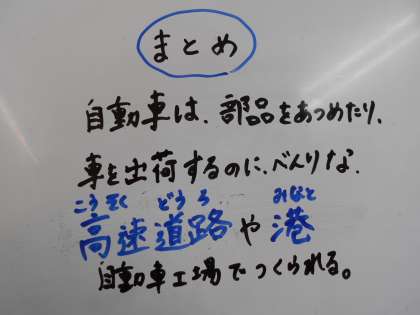 まとめ
自動車は、部品をあつめたり、
車を出荷するのに、べんりな、
こうそく どうろ みなと
高速道路や港
自動車工場でつくられる。